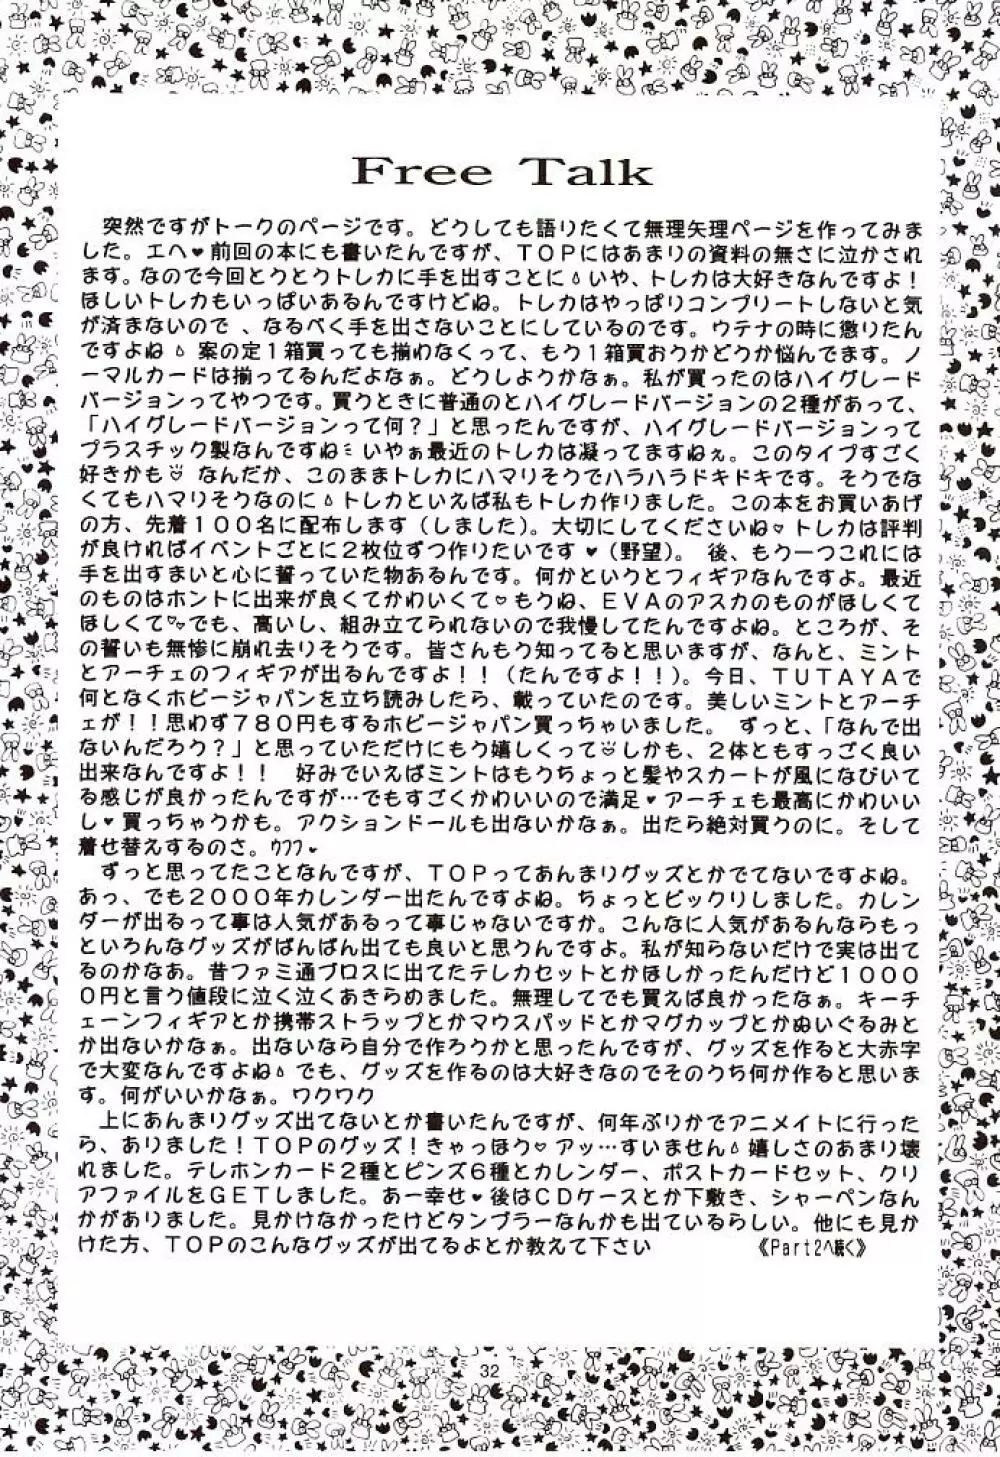 Free Talk
　突然ですがトークのページです。どうしても語りたくて無理矢理ページを作ってみま
した。エヘ♥前回の本にも書いたんですが、ＴＯＰにはあまりの資料の無さに泣かされ
ます。なので今回とうとうトレカに手を出すことに💧いや、トレカは大好きなんですよ！
ほしいトレカもいっぱいあるんですけどね。トレカはやっぱりコンプリートしないと気
が済まないので 、なるべく手を出さないことにしているのです。ウテナの時に懲りたん
ですよね💧 案の定１箱買っても揃わなくって、もう１箱買おうかどうか悩んでます。ノ
ーマルカードは揃ってるんだよなぁ。どうしようかなぁ。私が買ったのはハイグレード
バージョンってやつです。買うときに普通のとハイグレードバージョンの２種があって、
「ハイグレードバージョンって何？」と思ったんですが、ハイグレードバージョンって
プラスチック製なんですねミいやぁ最近のトレカは凝ってますねぇ。このタイプすごく
好きかも なんだか、このままトレカにハマりそうでハラハラドキドキです。そうでな
くてもハマりそうなのに💧トレカといえば私もトレカ作りました。この本をお買いあげ
の方、先着１００名に配布します（しました）。大切にしてくださいね♡トレカは評判
が良ければイベントごとに２枚位ずつ作りたいです♥（野望）。 後、もう一つこれには
手を出すまいと心に誓っていた物あるんです。何かというとフィギアなんですよ。最近
のものはホントに出来が良くてかわいくて♡もうね、ＥＶＡのアスカのものがほしくて
ほしくて♡でも、高いし、組み立てられないので我慢してたんですよね。ところが、そ
の誓いも無惨に崩れ去りそうです。皆さんもう知ってると思いますが、なんと、ミント
とアーチェのフィギアが出るんですよ！！（たんですよ！！）。今日、ＴＵＴＡＹＡで
何となくホビージャパンを立ち読みしたら、載っていたのです。美しいミントとアーチ
ェが！！思わず７８０円もするホビージャパン買っちゃいました。 ずっと、「なんで出
ないんだろう？」と思っていただけにもう嬉しくって しかも、２体ともすっごく良い
出来なんですよ！！　好みでいえばミントはもうちょっと髪やスカートが風になびいて
る感じが良かったんですが…でもすごくかわいいので満足♥アーチェも最高にかわいい
し♥買っちゃうかも。アクションドールも出ないかなぁ。出たら絶対買うのに。そして
着せ替えするのさ。ｳﾌﾌ♥
　ずっと思ってたことなんですが、ＴＯＰってあんまりグッズとかでてないですよね。
あっ、でも２０００年カレンダー出たんですよね。ちょっとビックリしました。カレン
ダーが出るって事は人気があるって事じゃないですか。こんなに人気があるんならもっ
といろんなグッズがばんばん出ても良いと思うんですよ。私が知らないだけで実は出て
るのかなあ。昔ファミ通ブロスに出てたテレカセットとかほしかったんだけど１０００
０円と言う値段に泣く泣くあきらめました。無理してでも買えば良かったなぁ。キーチ
ェーンフィギアとか携帯ストラップとかマウスパッドとかマグカップとかぬいぐるみと
か出ないかなぁ。出ないなら自分で作ろうかと思ったんですが、グッズを作ると大赤字
で大変なんですよね💧でも、グッズを作るのは大好きなのでそのうち何か作ると思いま
す。何がいいかなぁ。ワクワク
　上にあんまりグッズ出てないとか書いたんですが、何年ぶりかでアニメイトに行った
ら、ありました！ＴＯＰのグッズ！きゃっほう♡アッ…すいません💧嬉しさのあまり壊
れました。テレホンカード２種とピンズ６種とカレンダー、ポストカードセット、クリ
アファイルをＧＥＴしました。あー幸せ♥後はＣＤケースとか下敷き、シャーペンなん
かがありました。見かけなかったけどタンブラーなんかも出ているらしい。他にも見か
けた方、ＴＯＰのこんなグッズが出てるよとか教えて下さい　　　《Part2へ続く》
32